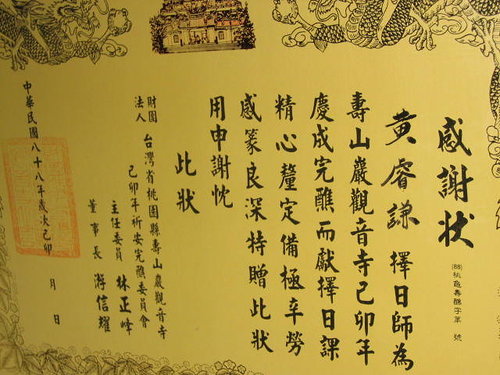 感謝狀
(88)桃龜壽醮字第 號
黃睿謙擇日師為
壽山巖觀音寺己卯年
慶成完醮而獻擇日課
精心釐定備極辛勞
感篆良深特贈此狀
用申謝忱
此狀
財團法人台灣省桃園縣壽山巖觀音寺
己卯年祈安完醮委員會
主任委員 林正峰
董事長 游信耀
中華民國八十八年歲次己卯 月 日